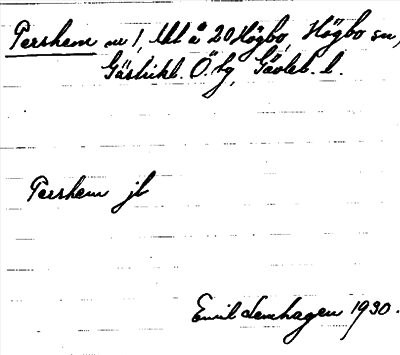 Pershem nr 1, lht å 20 Högbo, Högbo sn,
Gästrikl. Ö. tg, Gävleb. l.
Pershem jb
Emil Lenhagen 1930.